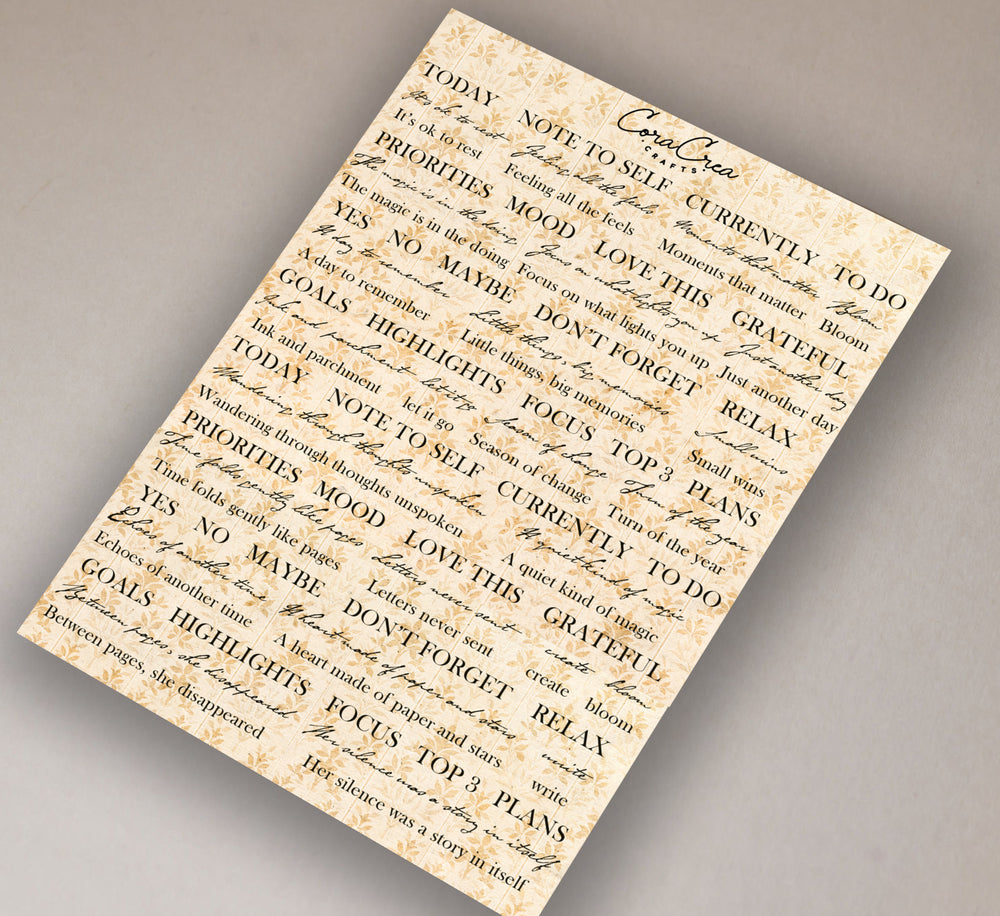 CoraCrea
CRAFTS
TODAY NOTE TO SELF CURRENTLY TO DO
It's ok to rest Feeling all the feels Moments that matter Bloom
It's ok to rest Feeling all the feels Moments that matter Bloom
PRIORITIES MOOD LOVE THIS GRATEFUL
The magic is in the doing Focus on what lights you up Just another day
The magic is in the doing Focus on what lights you up Just another day
YES NO MAYBE DON'T FORGET RELAX
A day to remember Little things, big memories Small wins
A day to remember Little things, big memories Small wins
GOALS HIGHLIGHTS FOCUS TOP 3 PLANS
Ink and parchment let it go Season of change Turn of the year
Ink and parchment let it go Season of change Turn of the year
TODAY NOTE TO SELF CURRENTLY TO DO
Wandering through thoughts unspoken A quiet kind of magic
Wandering through thoughts unspoken A quiet kind of magic
PRIORITIES MOOD LOVE THIS GRATEFUL
Time folds gently like pages Letters never sent create bloom
Time folds gently like pages Letters never sent create bloom
YES NO MAYBE DON'T FORGET RELAX
Echoes of another time A heart made of paper and stars write
Echoes of another time A heart made of paper and stars write
GOALS HIGHLIGHTS FOCUS TOP 3 PLANS
Between pages, she disappeared Her silence was a story in itself
Between pages, she disappeared Her silence was a story in itself